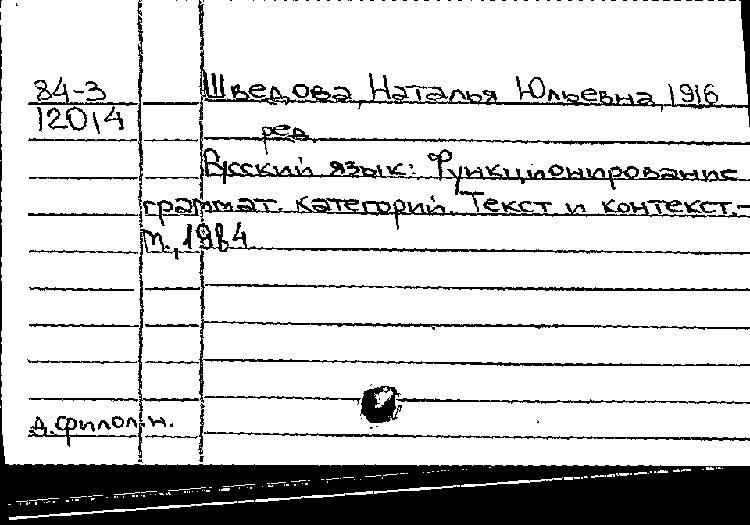 84-3 Шведова, Наталья Юльевна, 1916
12014
ред.
Русский язык: Функционирование
граммат. категорий. Текст и контекст.-
М., 1984
д.филол.н.